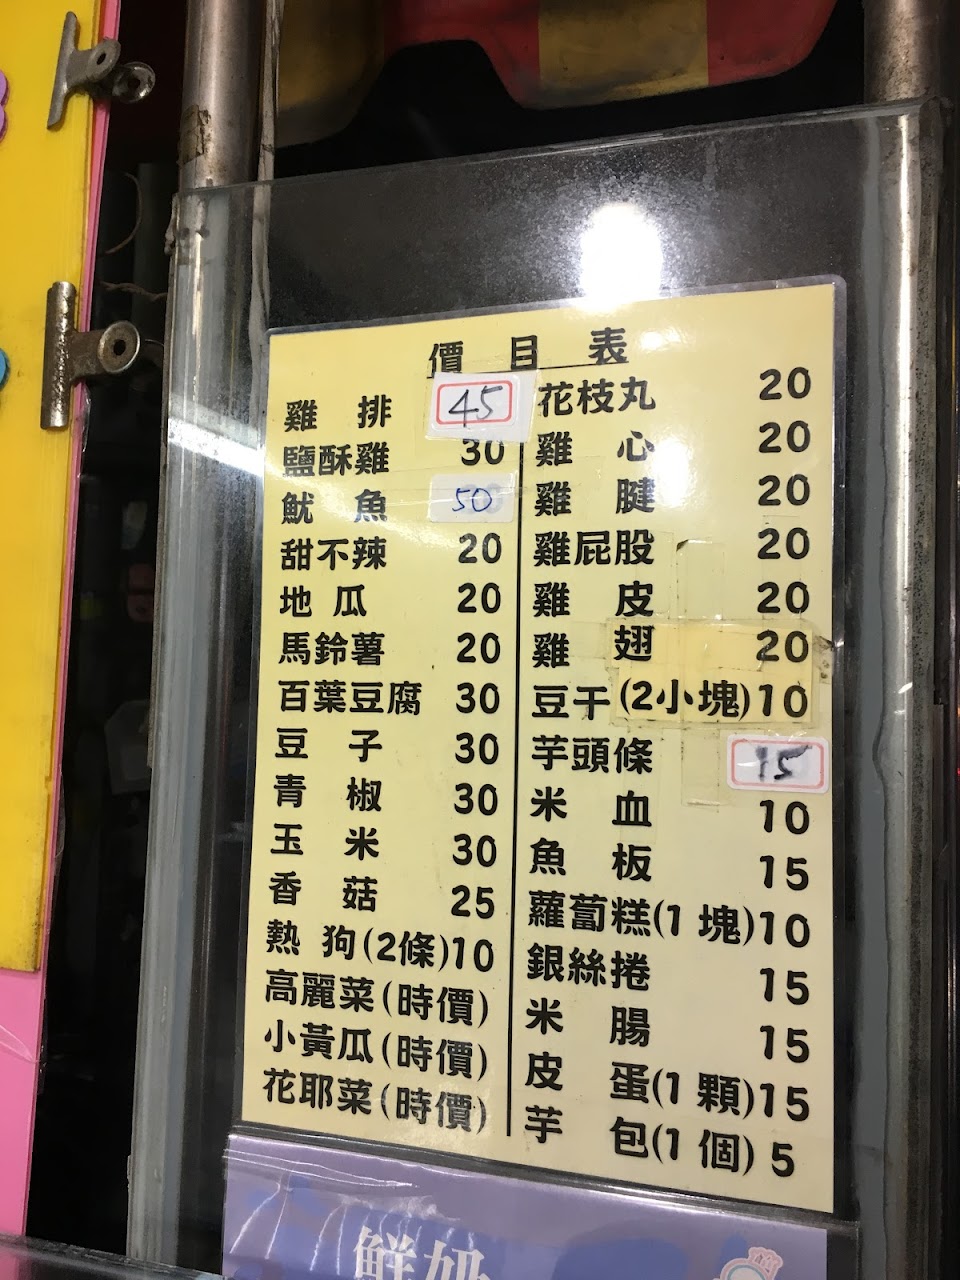 價目表
雞排 45
鹽酥雞 30
魷魚 50
甜不辣 20
地瓜 20
馬鈴薯 20
百葉豆腐 30
豆子 30
青椒 30
玉米 30
香菇 25
熱狗(2條)10
高麗菜(時價)
小黃瓜(時價)
花耶菜(時價)
花枝丸 20
雞心 20
雞腱 20
雞屁股 20
雞皮 20
雞翅 20
豆干(2小塊)10
芋頭條 15
米血 10
魚板 15
蘿蔔糕(1塊)10
銀絲捲 15
米腸 15
皮蛋(1顆)15
芋包(1個)5
鮮奶